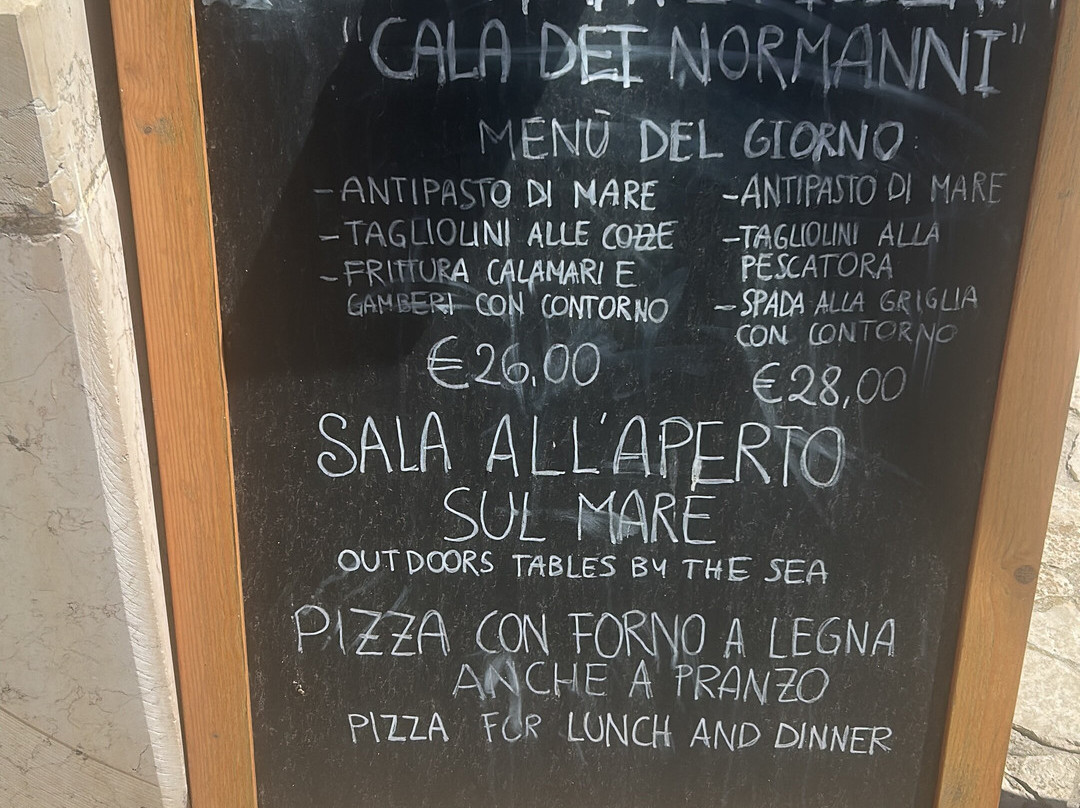 "CALA DEI NORMANNI"
MENÙ DEL GIORNO
-ANTIPASTO DI MARE
-TAGLIOLINI ALLE COZZE
-FRITTURA CALAMARI E
GAMBERI CON CONTORNO
€26,00
-ANTIPASTO DI MARE
-TAGLIOLINI ALLA
PESCATORA
-SPADA ALLA GRIGLIA
CON CONTORNO
€28,00
SALA ALL'APERTO
SUL MARE
OUTDOORS TABLES BY THE SEA
PIZZA CON FORNO A LEGNA
ANCHE A PRANZO
PIZZA FOR LUNCH AND DINNER